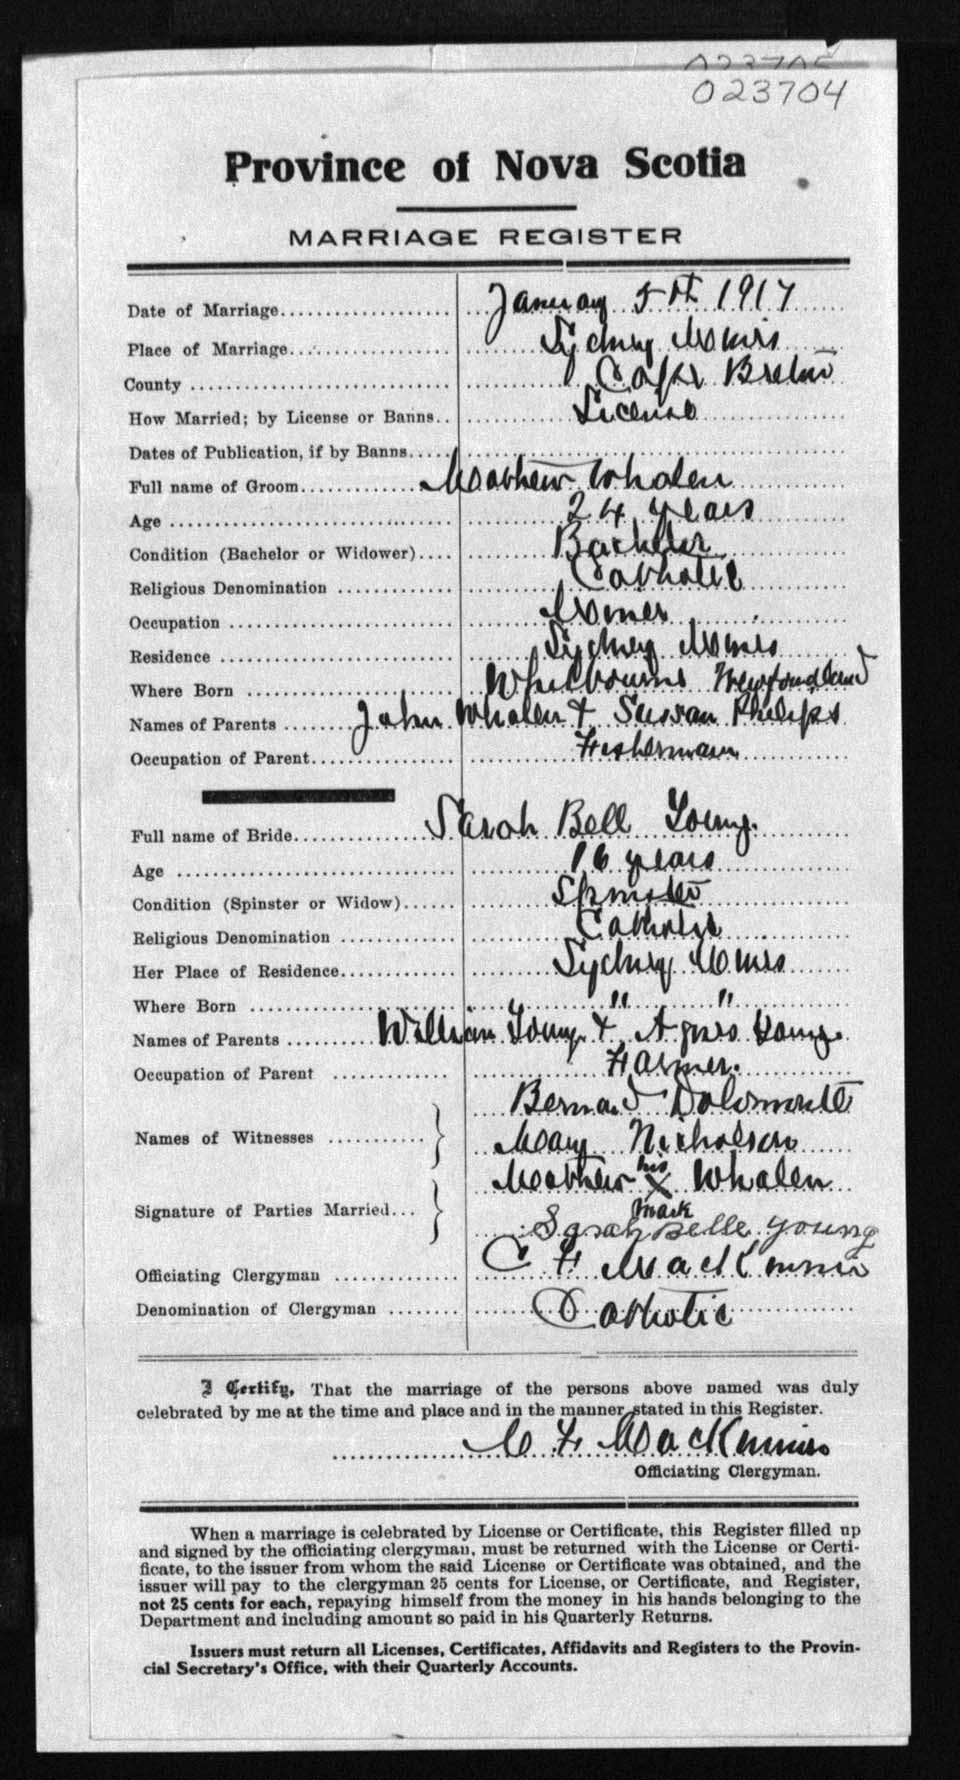 023704
Province of Nova Scotia
MARRIAGE REGISTER
Date of Marriage January 5th 1917
Place of Marriage Sydney Mines
County Cape Breton
How Married; by License or Banns License
Dates of Publication, if by Banns
Full name of Groom Mathew Whalen
Age 24 years
Condition (Bachelor or Widower) Bachelor
Religious Denomination Catholic
Occupation Miner
Residence Sydney Mines
Where Born Whitbourne Newfoundland
Names of Parents John Whalen & Sussan Philips
Occupation of Parent Fishermann
Full name of Bride Sarah Bell Young.
Age 16 years
Condition (Spinster or Widow) Spinster
Religious Denomination Catholic
Her Place of Residence Sydney Mines
Where Born " "
Names of Parents William Young & Agnes Young
Occupation of Parent Farmer.
Names of Witnesses Bernard
Mary Nicholson
Signature of Parties Married Mathew his X mark Whalen
Sarah Belle Young
Officiating Clergyman C F MacKinnon
Denomination of Clergyman Catholic
I Certify, That the marriage of the persons above named was duly
celebrated by me at the time and place and in the manner stated in this Register.
C F MacKinnon
Officiating Clergyman.
When a marriage is celebrated by License or Certificate, this Register filled up
and signed by the officiating clergyman, must be returned with the License or Certi-
ficate, to the issuer from whom the said License or Certificate was obtained, and the
issuer will pay to the clergyman 25 cents for License, or Certificate, and Register,
not 25 cents for each, repaying himself from the money in his hands belonging to the
Department and including amount so paid in his Quarterly Returns.
Issuers must return all Licenses, Certificates, Affidavits and Registers to the Provin-
cial Secretary's Office, with their Quarterly Accounts.